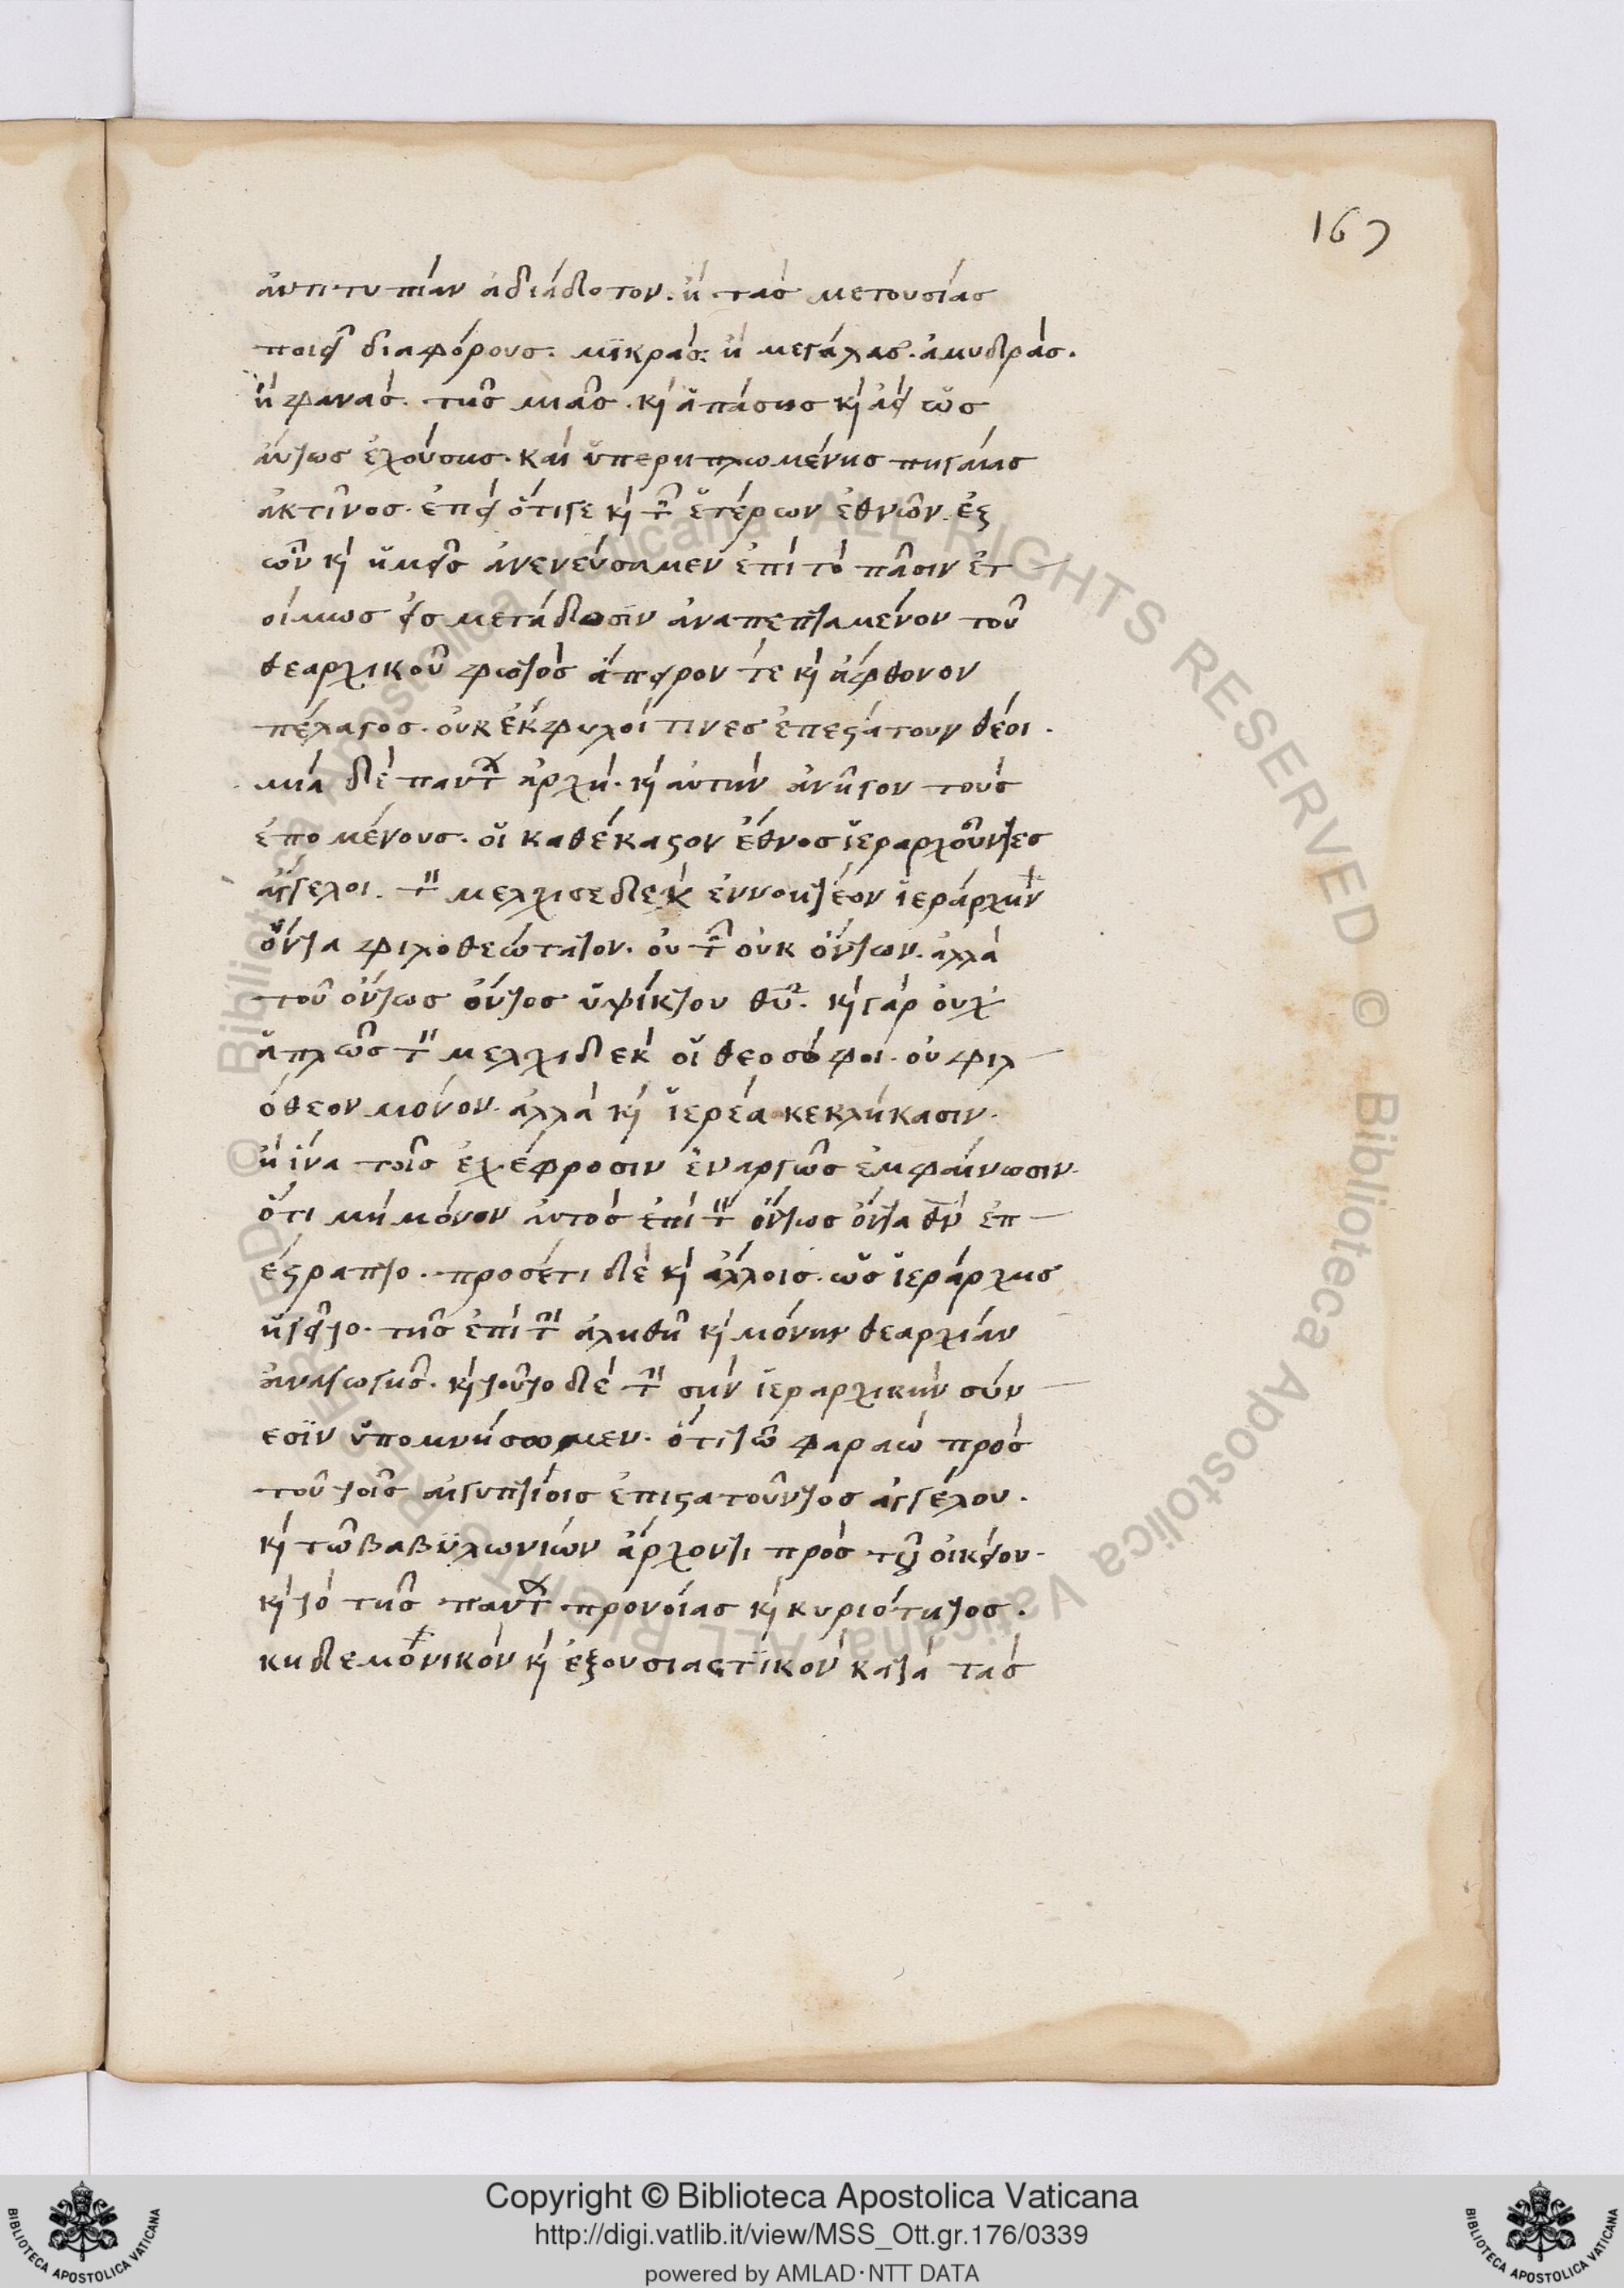 167
ἀντιτυπίαν ἀδιάδοτον. ἢ τὰς μετουσίας
ποιεῖ διαφόρους. μϊκράς· ἢ μεγάλας. ἀμυδράς.
ἢ φανάς. τῆς μιᾶς. κỳ ἁπάσης κỳ ἀεὶ ὡς
αύτως ἐχούσης. καὶ ὑπερηπλωμένης πηγαίας
ἀκτῖνος. ἐπεὶ ὅτιγε κỳ τῶν ἑτέρων ἐθνῶν. ἐξ
ὧν κỳ ἡμεῖς ἀνενεύσαμεν ἐπὶ τὸ πᾶσιν ἑτ
οίμως εἰς μετάδωσϊν ἀναπεπταμένον τοῦ
θεαρχικοῦ φωτὸς ἄπειρον τὲ κỳ ἄφθονον
πέλαγος. οὐκ ἔκφυλοί τινες ἐπεστάτουν θέοι.
μιὰ δὲ πάντων ἀρχή. κỳ αὐτὴν ἀνῆγον τοὺς
ἑπομένους. οἱ καθέκαστον ἔθνος ἱεραρχοῦντες
ἄγγελοι. τὸν μελχισεδεκ ἐννοητέον ἱεράρχην
ὄντα φιλοθεώτατον. οὐ τῶν οὐκ ὄντων. ἀλλὰ
τοῦ ὄντως ὄντος ὑψίστου θυ. κỳ γὰρ οὐχ
ἁπλῶς τὸν μελχιδεκ οἱ θεοσόφοι. οὐ φιλ
όθεον μόνον. ἀλλὰ κỳ ἱερέα κεκλήκασιν.
ἢ ἵνα τοῖς ἐχέφροσιν ἐναργῶς ἐμφαίνωσιν.
ὅτι μὴ μόνον αὐτὸς ἐπὶ τὸν ὄντως ὄντα θν ἐπ
έστραπτο. προσέτι δὲ κỳ ἄλλοις. ὡς ἱεράρχης
ἡγεῖτο. τῆς ἐπὶ τὴν ἀληθῆ κỳ μόνην θεαρχίαν
ἀναγωγῆς. κỳ τοῦτο δὲ τὴν σὴν ἱεραρχικὴν σύν
εσϊν ὑπομνήσωμεν. ὅτι τῶ φαραὼ πρὸς
τοῦ τοῖς αἰγυπτίοις ἐπιστατοῦντος ἀγγέλου.
κỳ τῶ βαβϋλωνίων ἄρχοντι πρὸς τοῦ οἰκείου.
κỳ τὸ τῆς πάντων προνοίας κỳ κυριότητος.
κηδεμόνικὸν κỳ ἐξουσιαστϊκὸν κατὰ τὰς
Copyright © Biblioteca Apostolica Vaticana
http://digi.vatlib.it/view/MSS_Ott.gr.176/0339
powered by AMLAD·NTT DATA
BIBLIOTECA APOSTOLICA VATICANA
BIBLIOTECA APOSTOLICA VATICANA